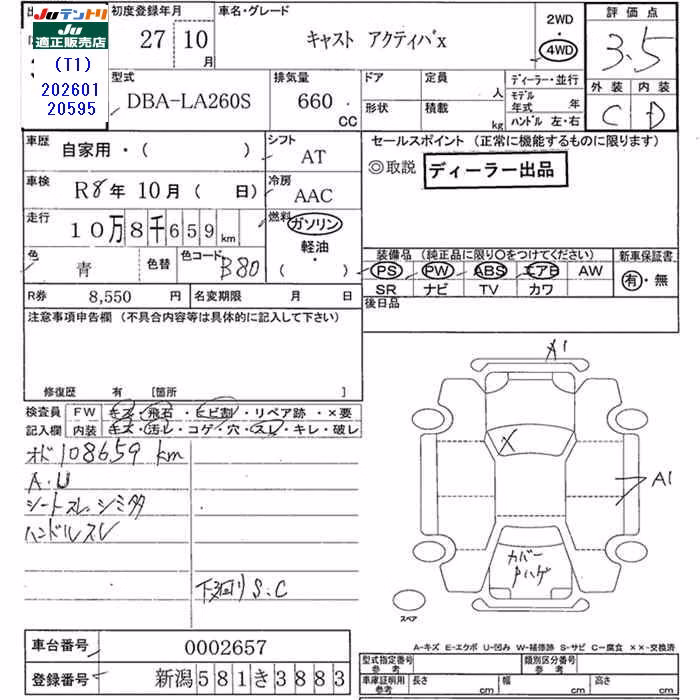 Juテントリ
Ju
適正販売店
(T1)
202601
20595
初度登録年月
27 10
月
車名・グレード
キャスト アクティバX
2WD
・
4WD
評価点
3.5
外装 内装
C D
型式
DBA-LA260S
排気量
660
CC
ドア
形状
定員
人
積載
kg
ディーラー・並行
モデル
年式 年
ハンドル 左・右
車歴
自家用・( )
シフト
AT
セールスポイント (正常に機能するものに限ります)
◎取説 ディーラー出品
車検
R8年10月( 日)
冷房
AAC
走行
10万8千659km
燃料
ガソリン
軽油・
( )
色
青
色替
色コード
B80
装備品 (純正品に限り〇をつけてください)
PS PW ABS エアB AW
SR ナビ TV カワ
新車保証書
有・無
R券 8,550 円
名変期限 月 日
後日品
注意事項申告欄 (不具合内容等は具体的に記入して下さい)
修復歴 有 [箇所 ]
検査員
記入欄
FW キズ・飛石・ヒビ割・リペア跡・×要
内装 キズ・汚レ・コゲ・穴・スレ・キレ・破レ
オド108659 km
A.U
シートスレ、シミ多
ハンドルスレ
下廻りS.C
A1
X
A1
カバー
Pハゲ
スペア
A-キズ E-エクボ U-凹み W-補修跡 S-サビ C-腐食 ××-交換済
車台番号 0002657
登録番号 新潟581き3883
型式指定番号
参考
類別区分番号
参考
車庫証明用
参考
長さ cm
幅 cm
高さ cm